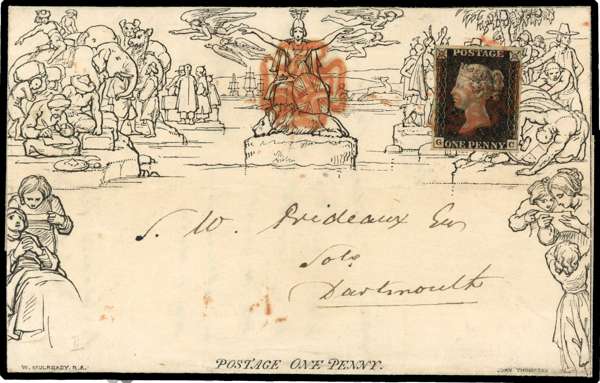 POSTAGE
C C
ONE PENNY
S. W. Prideaux Esq
Solr
Dartmouth
POSTAGE ONE PENNY.
W. MULREADY. R.A.
JOHN THOMPSON